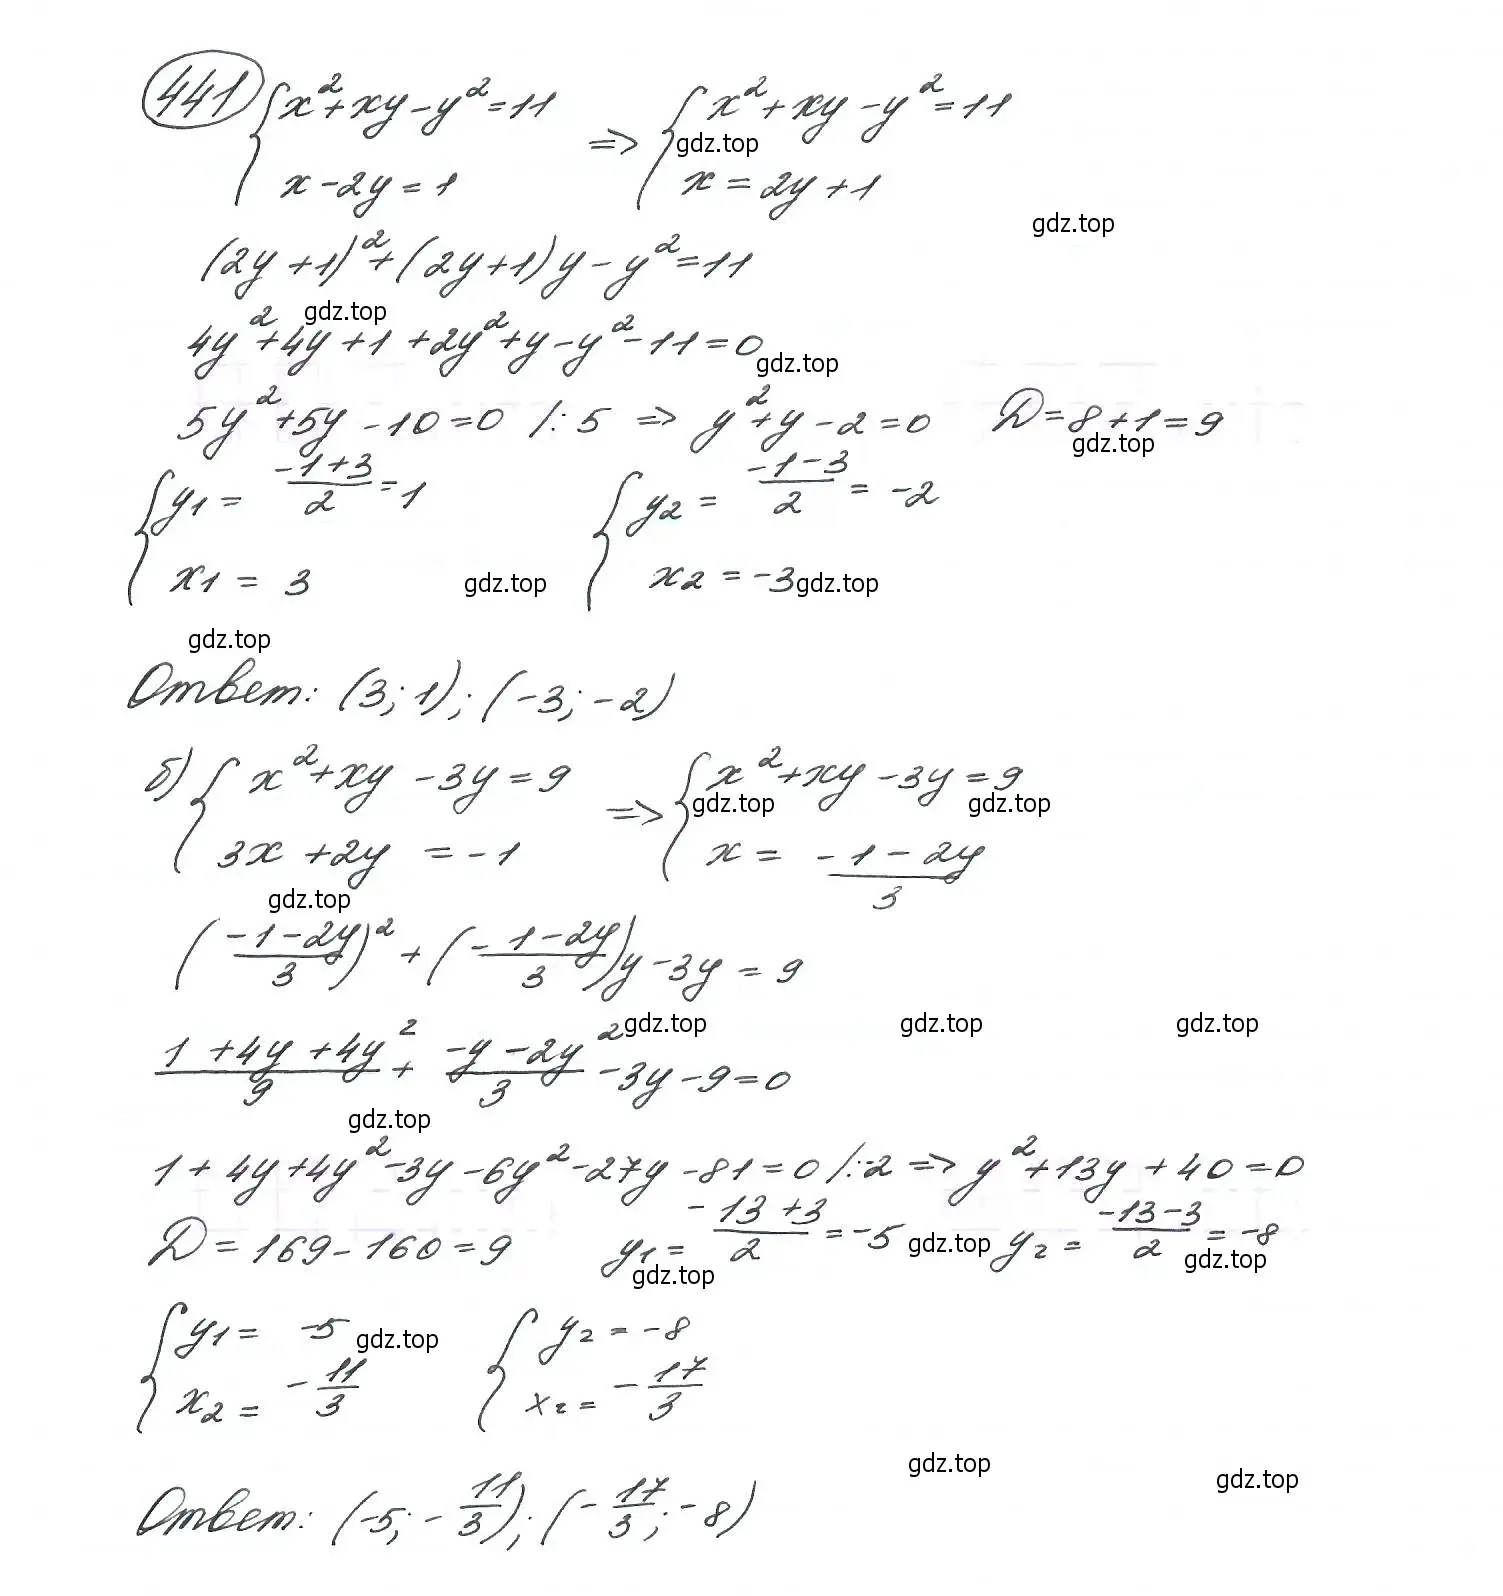 441 { x² + xy - y² = 11 => { x² + xy - y² = 11
gdz.top
x - 2y = 1 x = 2y + 1
gdz.top
(2y + 1)² + (2y + 1)y - y² = 11
gdz.top
4y² + 4y + 1 + 2y² + y - y² - 11 = 0
gdz.top
5y² + 5y - 10 = 0 /: 5 => y² + y - 2 = 0 D = 8 + 1 = 9
gdz.top
{ y1 = (-1+3)/2 = 1 { y2 = (-1-3)/2 = -2
x1 = 3 gdz.top x2 = -3 gdz.top
gdz.top
Ответ: (3; 1); (-3; -2)
б) { x² + xy - 3y = 9 => { x² + xy - 3y = 9
gdz.top gdz.top
3x + 2y = -1 x = (-1-2y)/3
gdz.top
((-1-2y)/3)² + (-(1-2y)/3)y - 3y = 9
gdz.top gdz.top gdz.top
(1 + 4y + 4y²)/9 + (-y - 2y²)/3 - 3y - 9 = 0
gdz.top
1 + 4y + 4y² - 3y - 6y² - 27y - 81 = 0 /:-2 => y² + 13y + 40 = 0
D = 169 - 160 = 9 y1 = (-13+3)/2 = -5 gdz.top y2 = (-13-3)/2 = -8
gdz.top gdz.top
{ y1 = -5 gdz.top { y2 = -8
x2 = -11/3 x2 = -17/3
gdz.top gdz.top
Ответ: (-5; -11/3); (-17/3; -8)